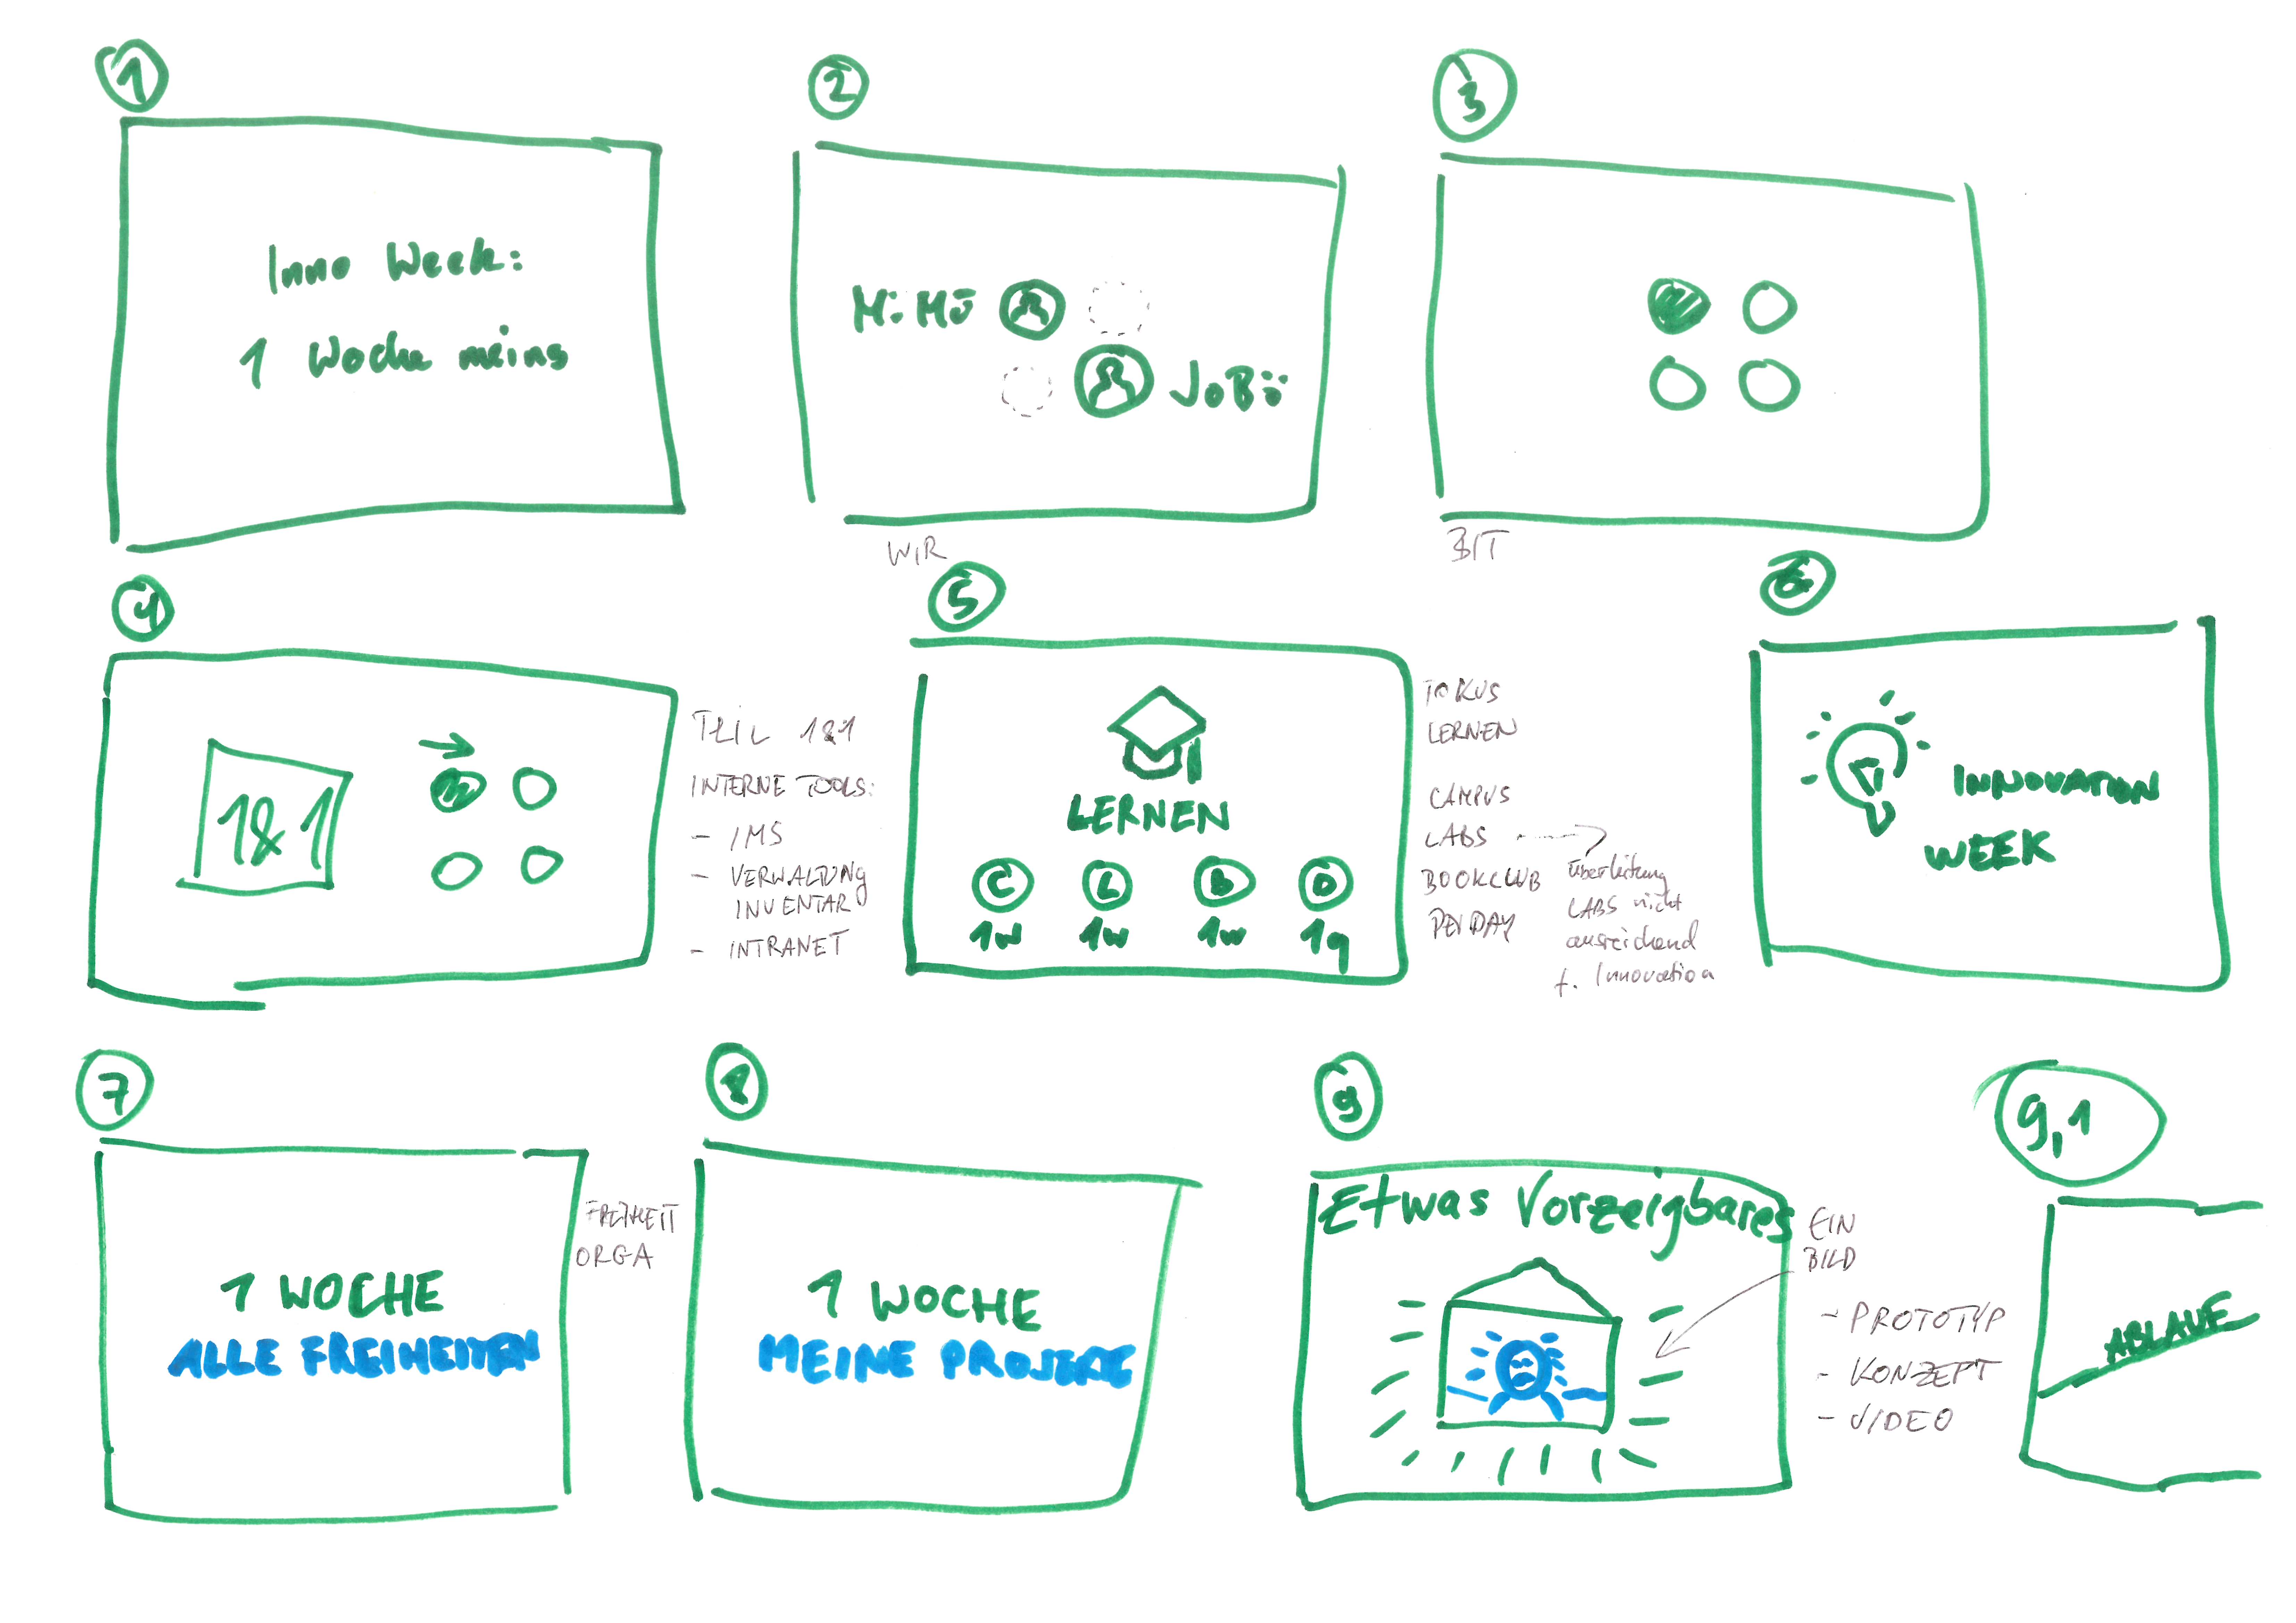 1
Inno Week:
1 Woche meins
2
MiMö
JoBö
WIR
3
BIT
4
1&1
TEIL 1&1
INTERNE TOOLS:
- IMS
- VERWALTUNG
INVENTAR
- INTRANET
5
LERNEN
C L B D
1w 1w 1w 1q
FOKUS
LERNEN
CAMPUS
LABS
BOOKCLUB
DEVDAY
Überleitung
LABS nicht
ausreichend
f. Innovation
6
INNOVATION
WEEK
7
1 WOCHE
ALLE FREIHEITEN
FREIHEIT
ORGA
8
1 WOCHE
MEINE PROJEKTE
9
Etwas Vorzeigbares
EIN
BILD
- PROTOTYP
- KONZEPT
- VIDEO
9,1
ABLAUF